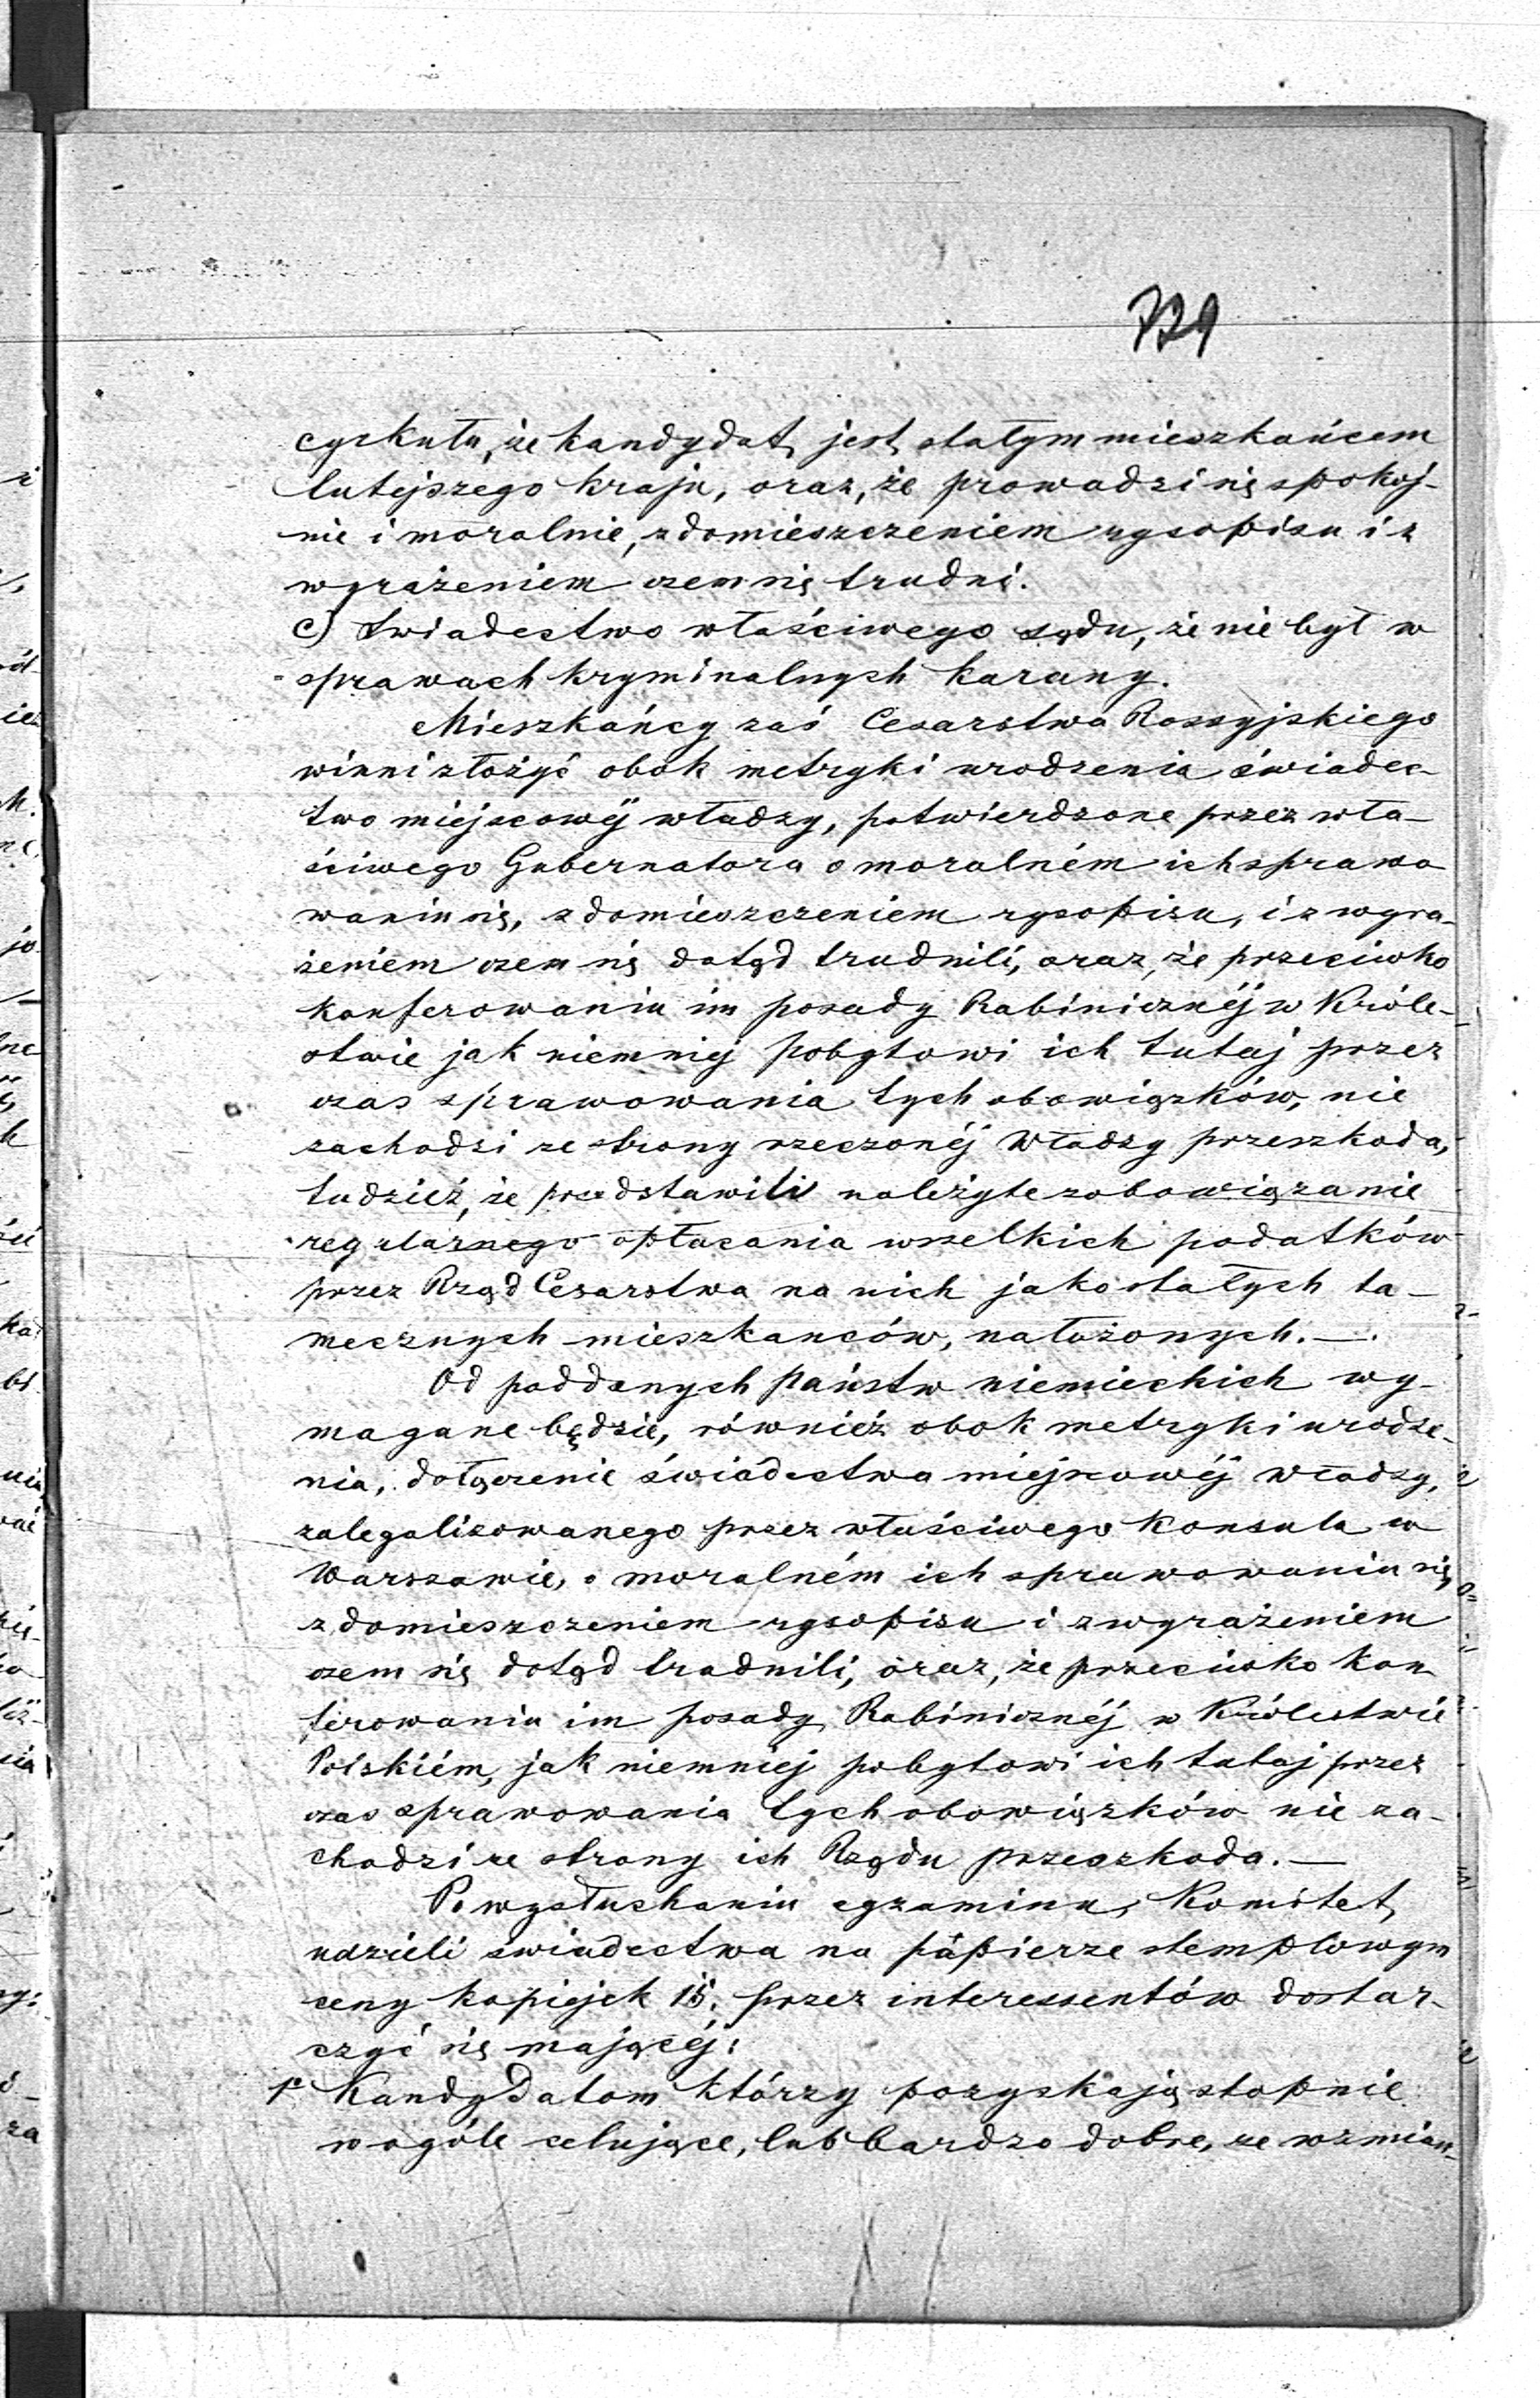 729
cyrkułu, że kandydat jest stałym mieszkańcem
tutejszego kraju, oraz, że prowadzi się spokoj-
nie i moralnie, z domieszczeniem rysopisu i z
wyrażeniem czem się trudni.
c) Świadectwo właściwego sądu, że nie był w
sprawach kryminalnych karany.
Mieszkańcy zaś Cesarstwa Rossyjskiego
winni złożyć obok metryki urodzenia świadec-
two miejscowéj władzy, potwierdzone przez wła-
ściwego Gubernatora o moralném ich sprawo
waniu się, z domieszczeniem rysopisu, i z wyra-
żeniem czem się dotąd trudnili, oraz, że przeciwko
konferowaniu im posady Rabinicznéj w Króle-
stwie jak niemniej pobytowi ich tutaj przez
czas sprawowania tych obowiązków, nie
zachodzi ze strony rzeczonéj Władzy przeszkoda,
tudzież, że przedstawili należyte zobowiązanie
regularnego opłacania wszelkich podatków
przez Rząd Cesarstwa na nich jako stałych ta-
mecznych mieszkanców, nałożonych. —.
Od poddanych państw niemieckich wy-
magane będzie, również obok metryki urodze-
nia, dołączenie świadectwa miejscowéj władzy,
zalegalizowanego przez właściwego Konsula w
Warszawie, o moralném ich sprawowaniu się,
z domieszczeniem rysopisu i z wyrażeniem
czem się dotąd trudnili, oraz, że przeciwko kon-
ferowaniu im posady Rabinicznéj w Królestwie
Polskiém, jak niemniej pobytowi ich tutaj przez
czas sprawowania tych obowiązków nie za-
chodzi ze strony ich Rządu przeszkoda. —
Po wysłuchaniu egzaminu, Komitet
udzieli świadectwa na papierze stemplowym
ceny kopiejek 15. przez interessentów dostar-
czyć się mającéj:
1º Kandydatom którzy pozyskają stopnie
w ogóle celujące, lub bardzo dobre, ze wzmian-